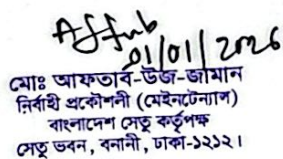 01/01/2026
মোঃ আফতাব-উজ-জামান
নির্বাহী প্রকৌশলী (মেইনটেন্যান্স)
বাংলাদেশ সেতু কর্তৃপক্ষ
সেতু ভবন, বনানী, ঢাকা-১২১২।